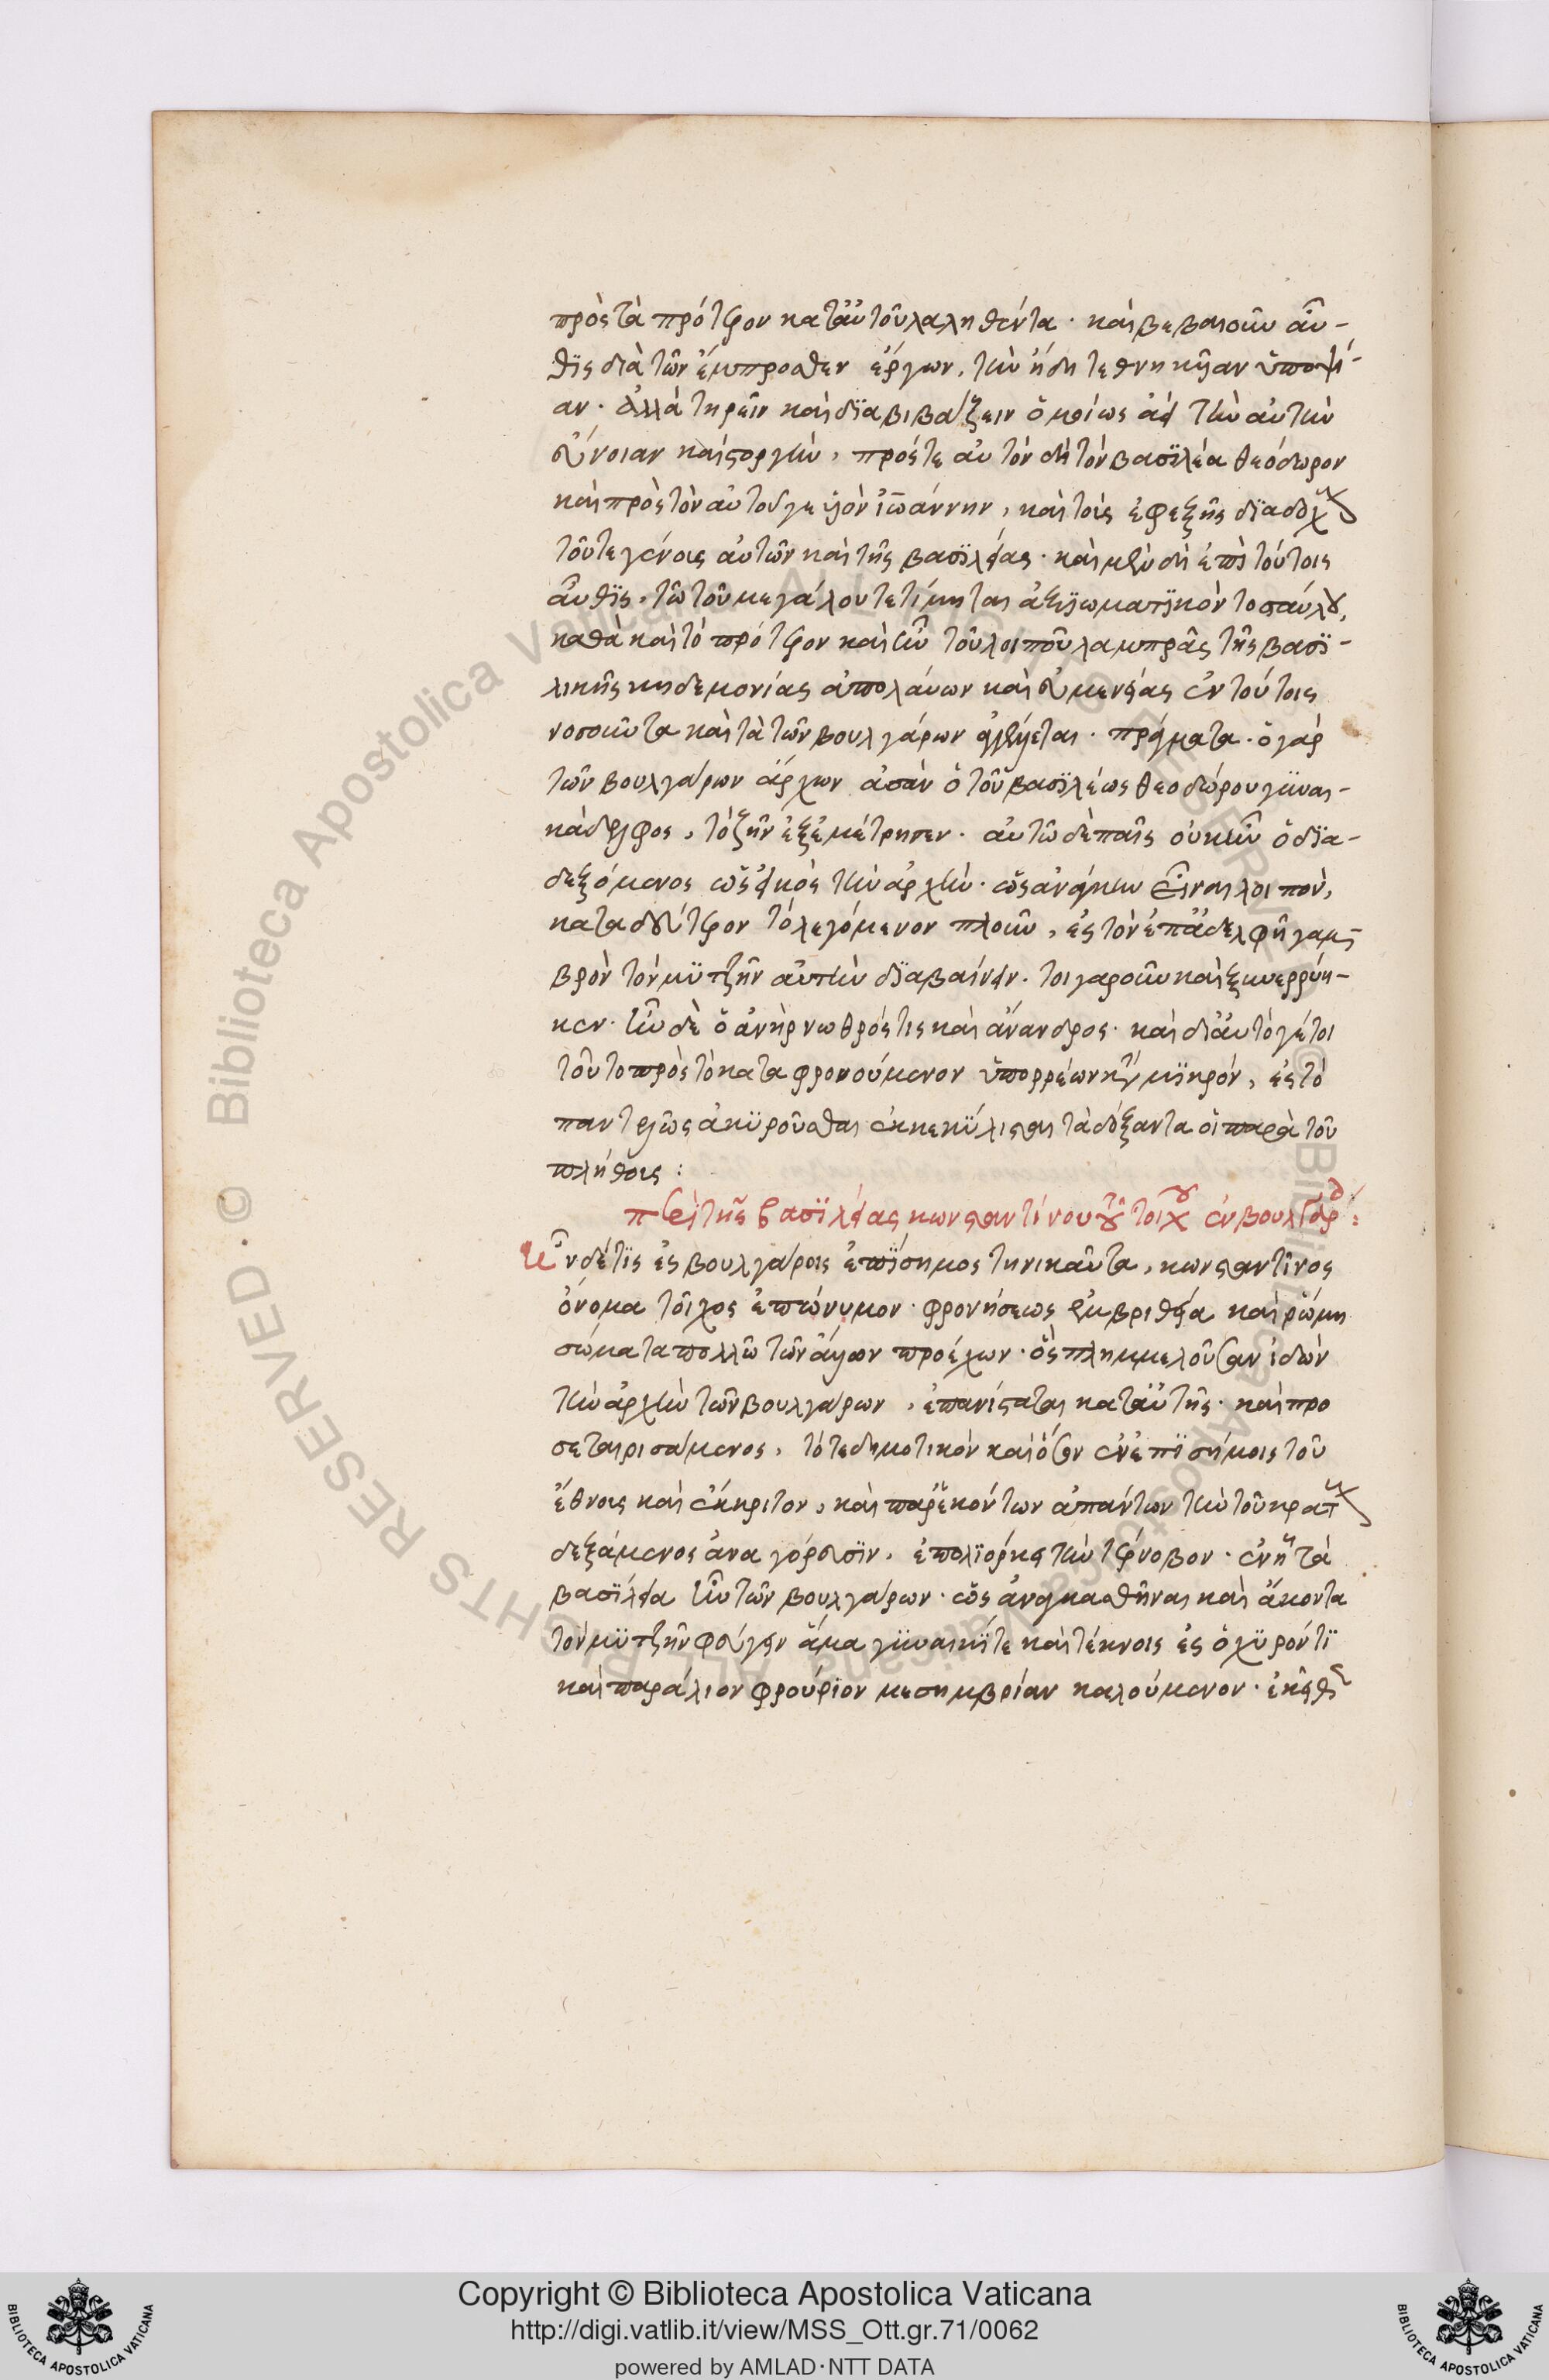 πρὸς τὰ πρότερον κατ' αὐτοῦ λαληθέντα · καὶ βεβαιοῦν αὖ-
θις διὰ τῶν ἔμπροσθεν ἔργων, τὴν ἤδη τεθνηκυῖαν ὑποψί-
αν · ἀλλὰ τηρεῖν καὶ διαβιβάζειν ὁμοίως ἀεὶ τὴν αὐτὴν
εὔνοιαν καὶ στοργὴν, πρός τε αὐτὸν δὴ τὸν βασιλέα θεόδωρον
καὶ πρὸς τὸν αὐτοῦ γε υἱὸν ἰωάννην, καὶ τοὺς ἐφεξῆς διαδόχ
τοῦ τε γένους αὐτῶν καὶ τῆς βασιλείας · καὶ μὲν δὴ ἐπὶ τούτοις
αὖθις, τῶ τοῦ μεγάλου τετίμηται ἀξιωματικὸν
καθὰ καὶ τὸ πρότερον καὶ ἦν τοῦ λοιποῦ λαμπρᾶς τῆς βασι-
λικῆς κηδεμονίας ἀπολαύων καὶ εὐμενείας ἐν τούτοις
νοσοῦντα καὶ τὰ τῶν βουλγάρων πράγματα · ὁ γὰρ
τῶν βουλγάρων ἄρχων ἀσὰν ὁ τοῦ βασιλέως θεοδώρου γυναι-
κάδελφος, τὸ ζῆν ἐξεμέτρησεν · αὐτῶ δὲ παῖς οὐκ ἦν ὁ δια-
δεξόμενος ὡς εἰκὸς τὴν ἀρχὴν · ὡς ἀνάγκην εἶναι λοιπὸν,
κατὰ δεύτερον τὸ λεγόμενον πλοῦν, ἐς τὸν ἐπ' ἀδελφῆ γαμ-
βρὸν τὸν μυτζῆν αὐτὴν διαβαίνειν · τοιγαροῦν καὶ ξυνερρύη-
κεν · ἦν δὲ ὁ ἀνὴρ νωθρός τις καὶ ἄνανδρος · καὶ δι' αὐτό γέ τοι
τοῦτο πρὸς τὸ καταφρονούμενον ὑπορρέων κατὰ μικρόν, ἐς τὸ
παντελῶς ἀκυροῦσθαι ἐκκεκύλισται τὰ δόξαντα οἱ παρὰ τοῦ
πλήθους :
περὶ τῆς βασιλείας κωνσταντίνου τοῦ τοίχου ἐν βουλγάρ :
ἦν δέ τις ἐς βουλγάροις ἐπίσημος τηνικαῦτα, κωνσταντῖνος
ὄνομα τοῖχος ἐπώνυμον · φρονήσεως ἐμβριθεία καὶ ρώμη
σώματα πολλῶ τῶν ἄλλων προέχων · ὃς πλημμελοῦσαν ἰδὼν
τὴν ἀρχὴν τῶν βουλγάρων, ἐπανίσταται κατ' αὐτῆς · καὶ προ
σεταιρισάμενος, τό τε δημοτικὸν καὶ ὅσον ἐν ἐπισήμοις τοῦ
ἔθνους καὶ ἔκκριτον, καὶ παρ' ἑκόντων ἁπάντων τὴν τοῦ κρατ
δεξάμενος ἀναγόρευσιν, ἐπολιόρκει τὴν τέρνοβον · ἐν ἧ τὰ
βασίλεια ἦν τῶν βουλγάρων · ὡς ἀναγκασθῆναι καὶ ἄκοντα
τὸν μυτζῆν φεύγειν ἅμα γυναικί τε καὶ τέκνοις ἐς ὀχυρόν τι
καὶ παράλιον φρούριον μεσημβρίαν καλούμενον · ἐκεῖθεν